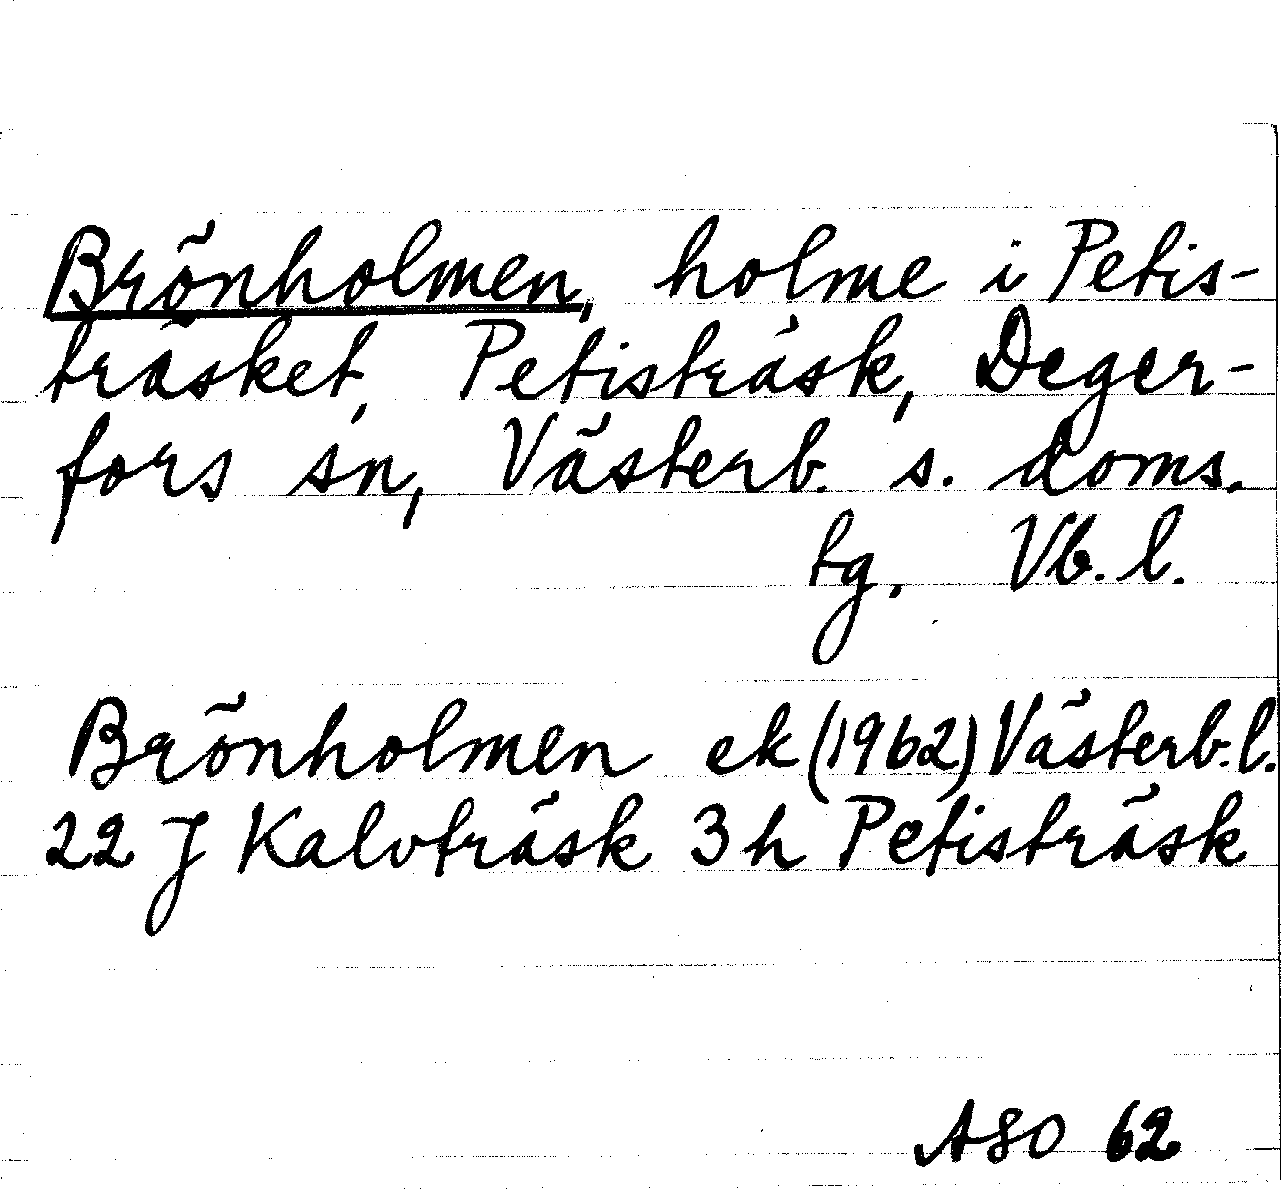 Brönholmen, holme i Petis-
träsket, Petisträsk, Deger-
fors sn, Västerb. s. doms.
tg. Vb. l.
Brönholmen ek (1962) Västerb. l.
22 J Kalvträsk 3 h Petisträsk
ASO 62